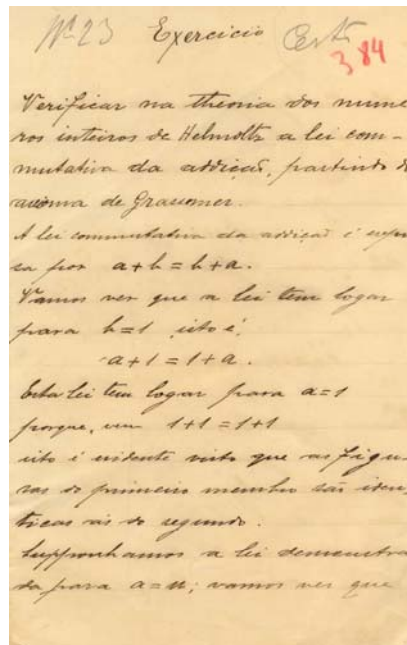 Nº 23 Exercicio Certo
384
Verificar na theoria dos nume-
ros inteiros de Helmoltz a lei com-
mutativa da addição, partindo do
axioma de Grassmer.
A lei commutativa da addição é expres
sa por a+b=b+a.
Vamos ver que a lei tem logar
para b=1 isto é,
a+1=1+a.
Esta lei tem logar para a=1
porque, vem 1+1=1+1
isto é evidente visto que as figu-
ras do primeiro membro são iden
ticas ás do segundo.
Supponhamos a lei demonstra
da para a=n; vamos ver que